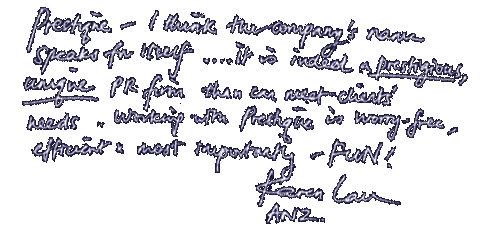 Prestique – I think the company's name
speaks for itself ....it is indeed a prestigious,
unique PR firm that can meet clients'
needs. Working with Prestique is worry-free,
efficient & most importantly – FUN!
Karen Lau
ANZ